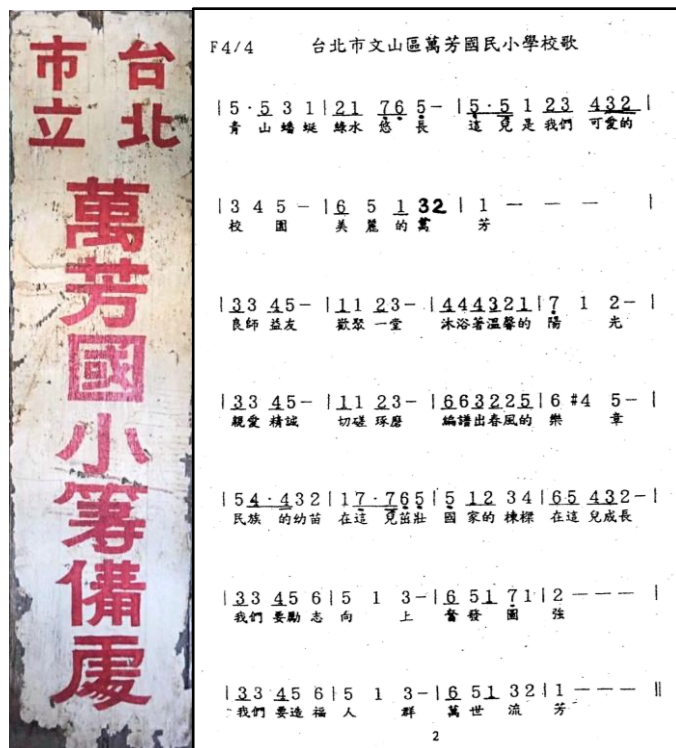 台北
市立
萬芳國小籌備處
F4/4 台北市文山區萬芳國民小學校歌
|5·5 3 1|21 76 5-|5·5 1 23 432|
青山蟠蜒 綠水 悠 長 這兒是我們 可愛的
|3 4 5 -|6 5 1 32|1 - - - |
校園 美麗的萬 芳
|33 45-|11 23-|444321|7 1 2-|
良師 益友 歡聚 一堂 沐浴著溫馨的 陽 光
|33 45-|11 23-|663225|6 #4 5-|
親愛 精誠 切磋 琢磨 編譜出春風的 樂 章
|54·432|17·765|5 12 34|65 432-|
民族 的幼苗 在這 兒茁壯 國 家的 棟樑 在這 兒成長
|33 456|5 1 3-|6 51 71|2---|
我們 要勵志 向 上 奮 發 圖 強
|33 456|5 1 3-|6 51 32|1---‖
我們 要造福 人 群 萬 世 流 芳
2